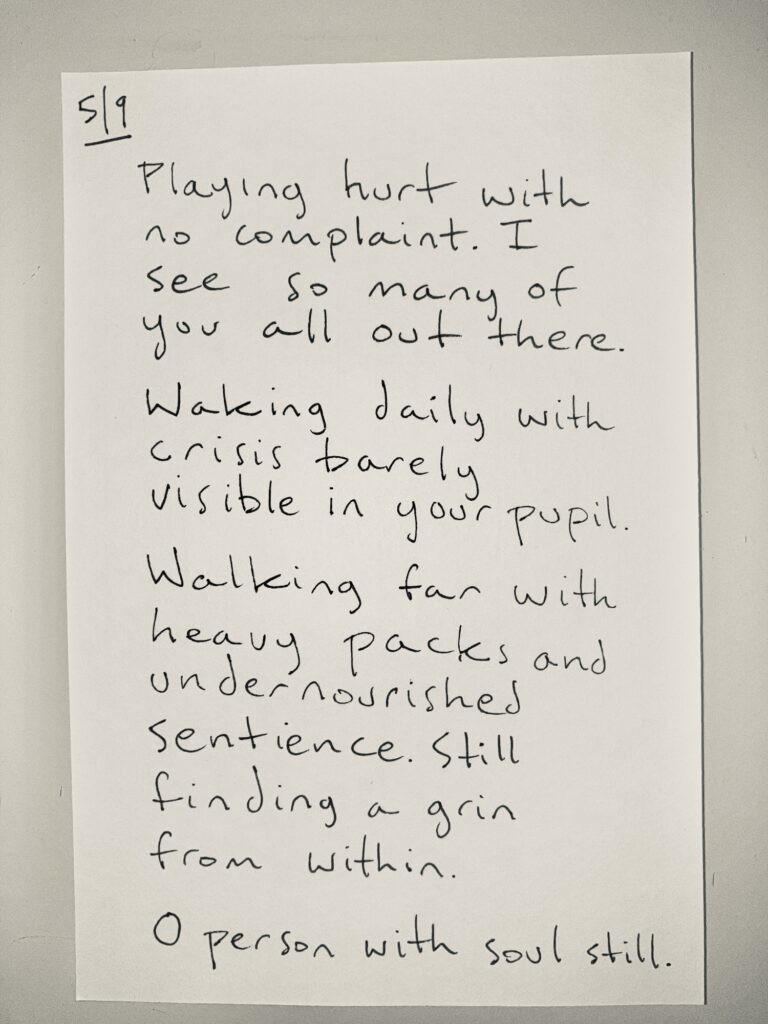 5/9
Playing hurt with
no complaint. I
see so many of
you all out there.
Waking daily with
crisis barely
visible in your pupil.
Walking far with
heavy packs and
undernourished
sentience. Still
finding a grin
from within.
O person with soul still.